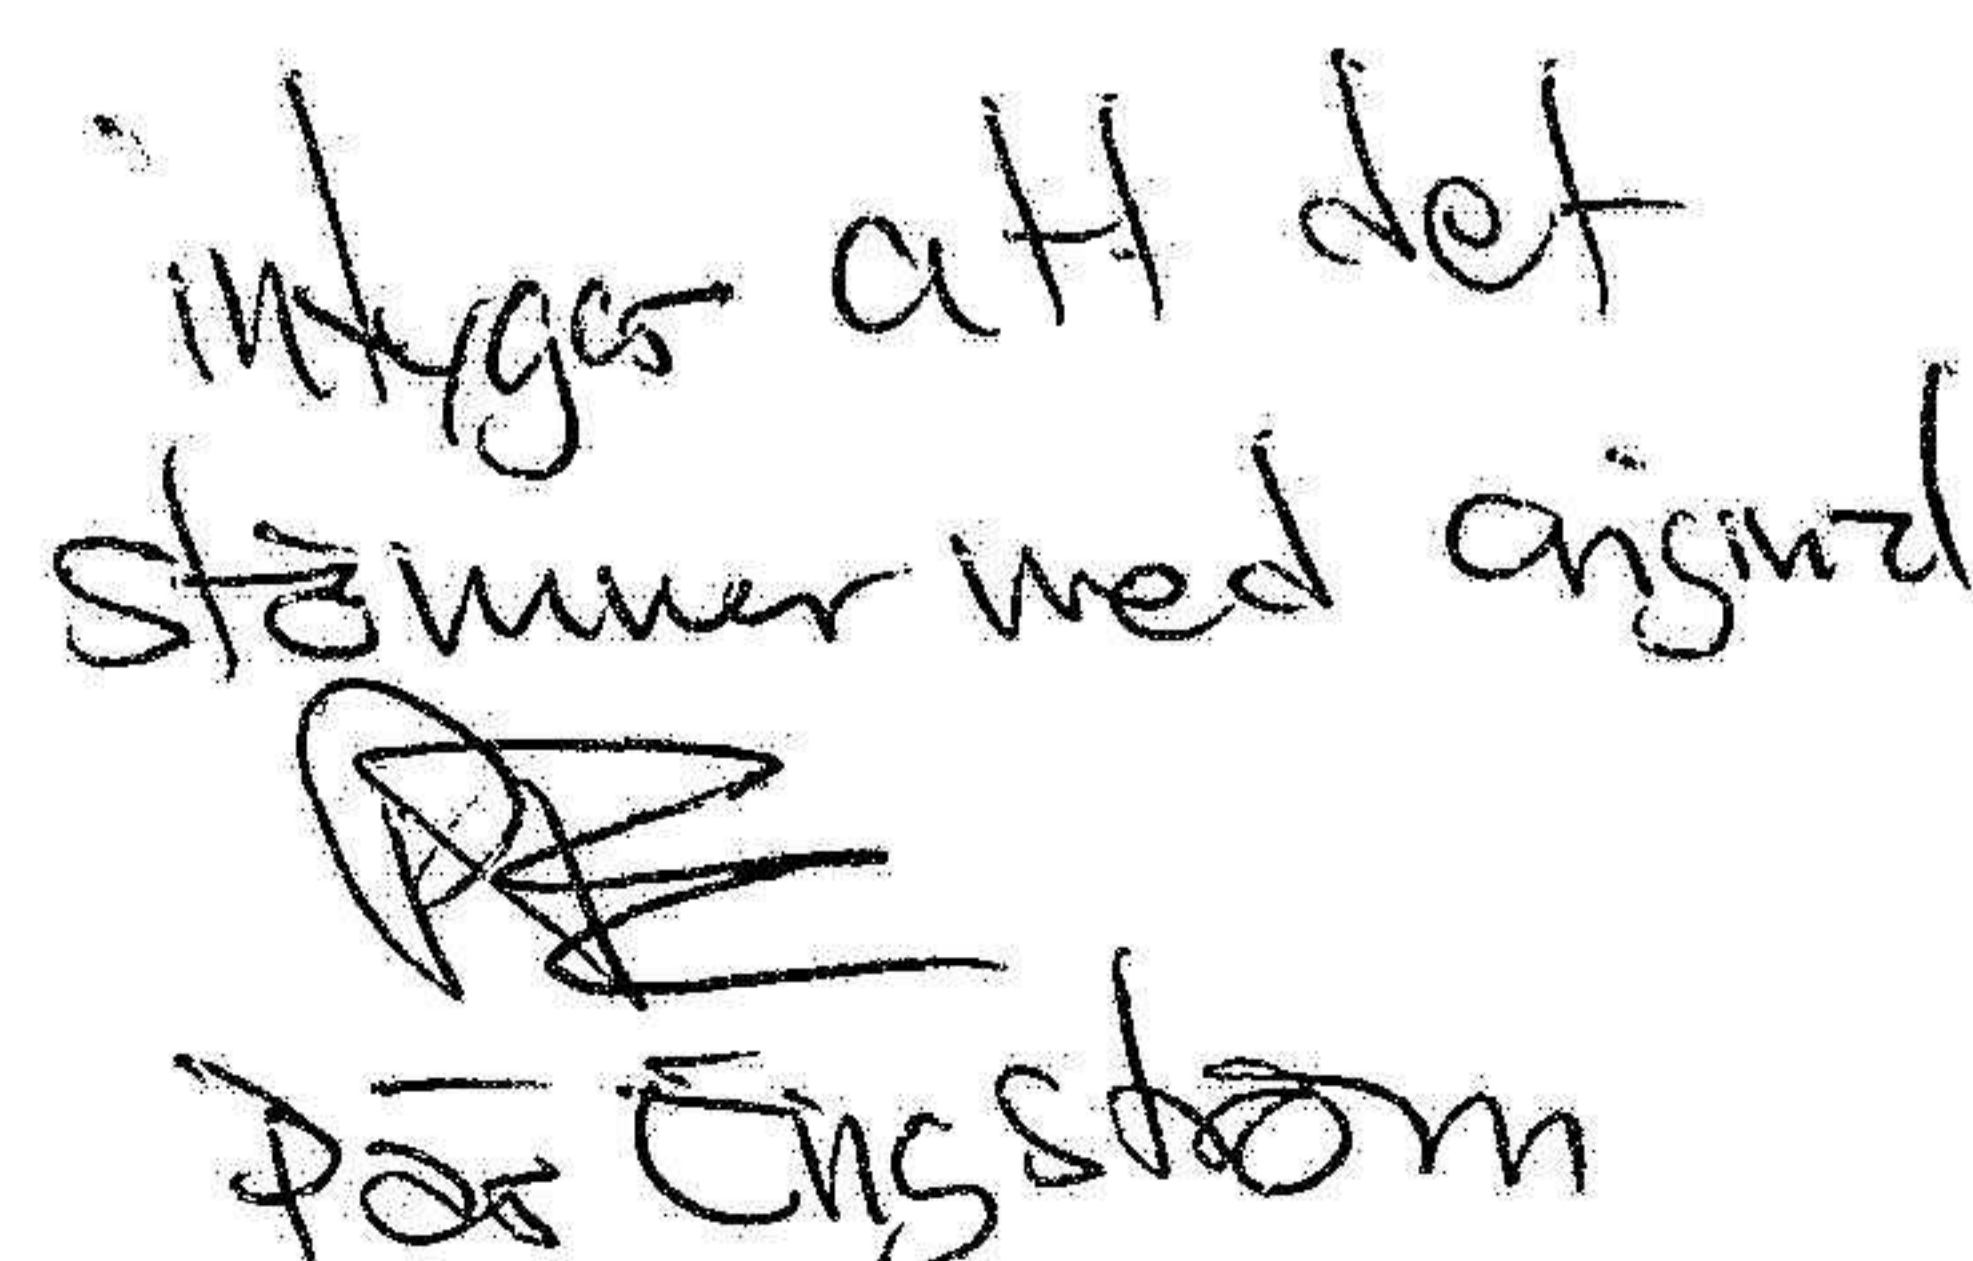 intygar att det
stämmer med original
PE
Pär Engström